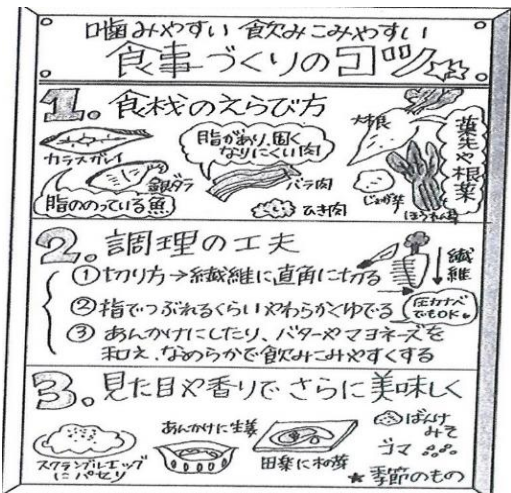 噛みやすい 飲みこみやすい
食事づくりのコツ
1. 食材のえらび方
カラスガレイ
銀ダラ
脂ののっている魚
脂があり、固く
なりにくい肉
バラ肉
ひき肉
大根
じゃが芋
ほうれん草
葉先や根菜
2. 調理の工夫
①切り方→繊維に直角に切る
繊維
②指でつぶれるくらいやわらかくゆでる
圧力ナベ
でもOK
③あんかけにしたり、バターやマヨネーズを
和え、なめらかで飲みこみやすくする
3. 見た目や香りでさらに美味しく
スクランブルエッグ
にパセリ
あんかけに生姜
田楽に木の芽
ばんけ
みそ
ゴマ
★季節のもの